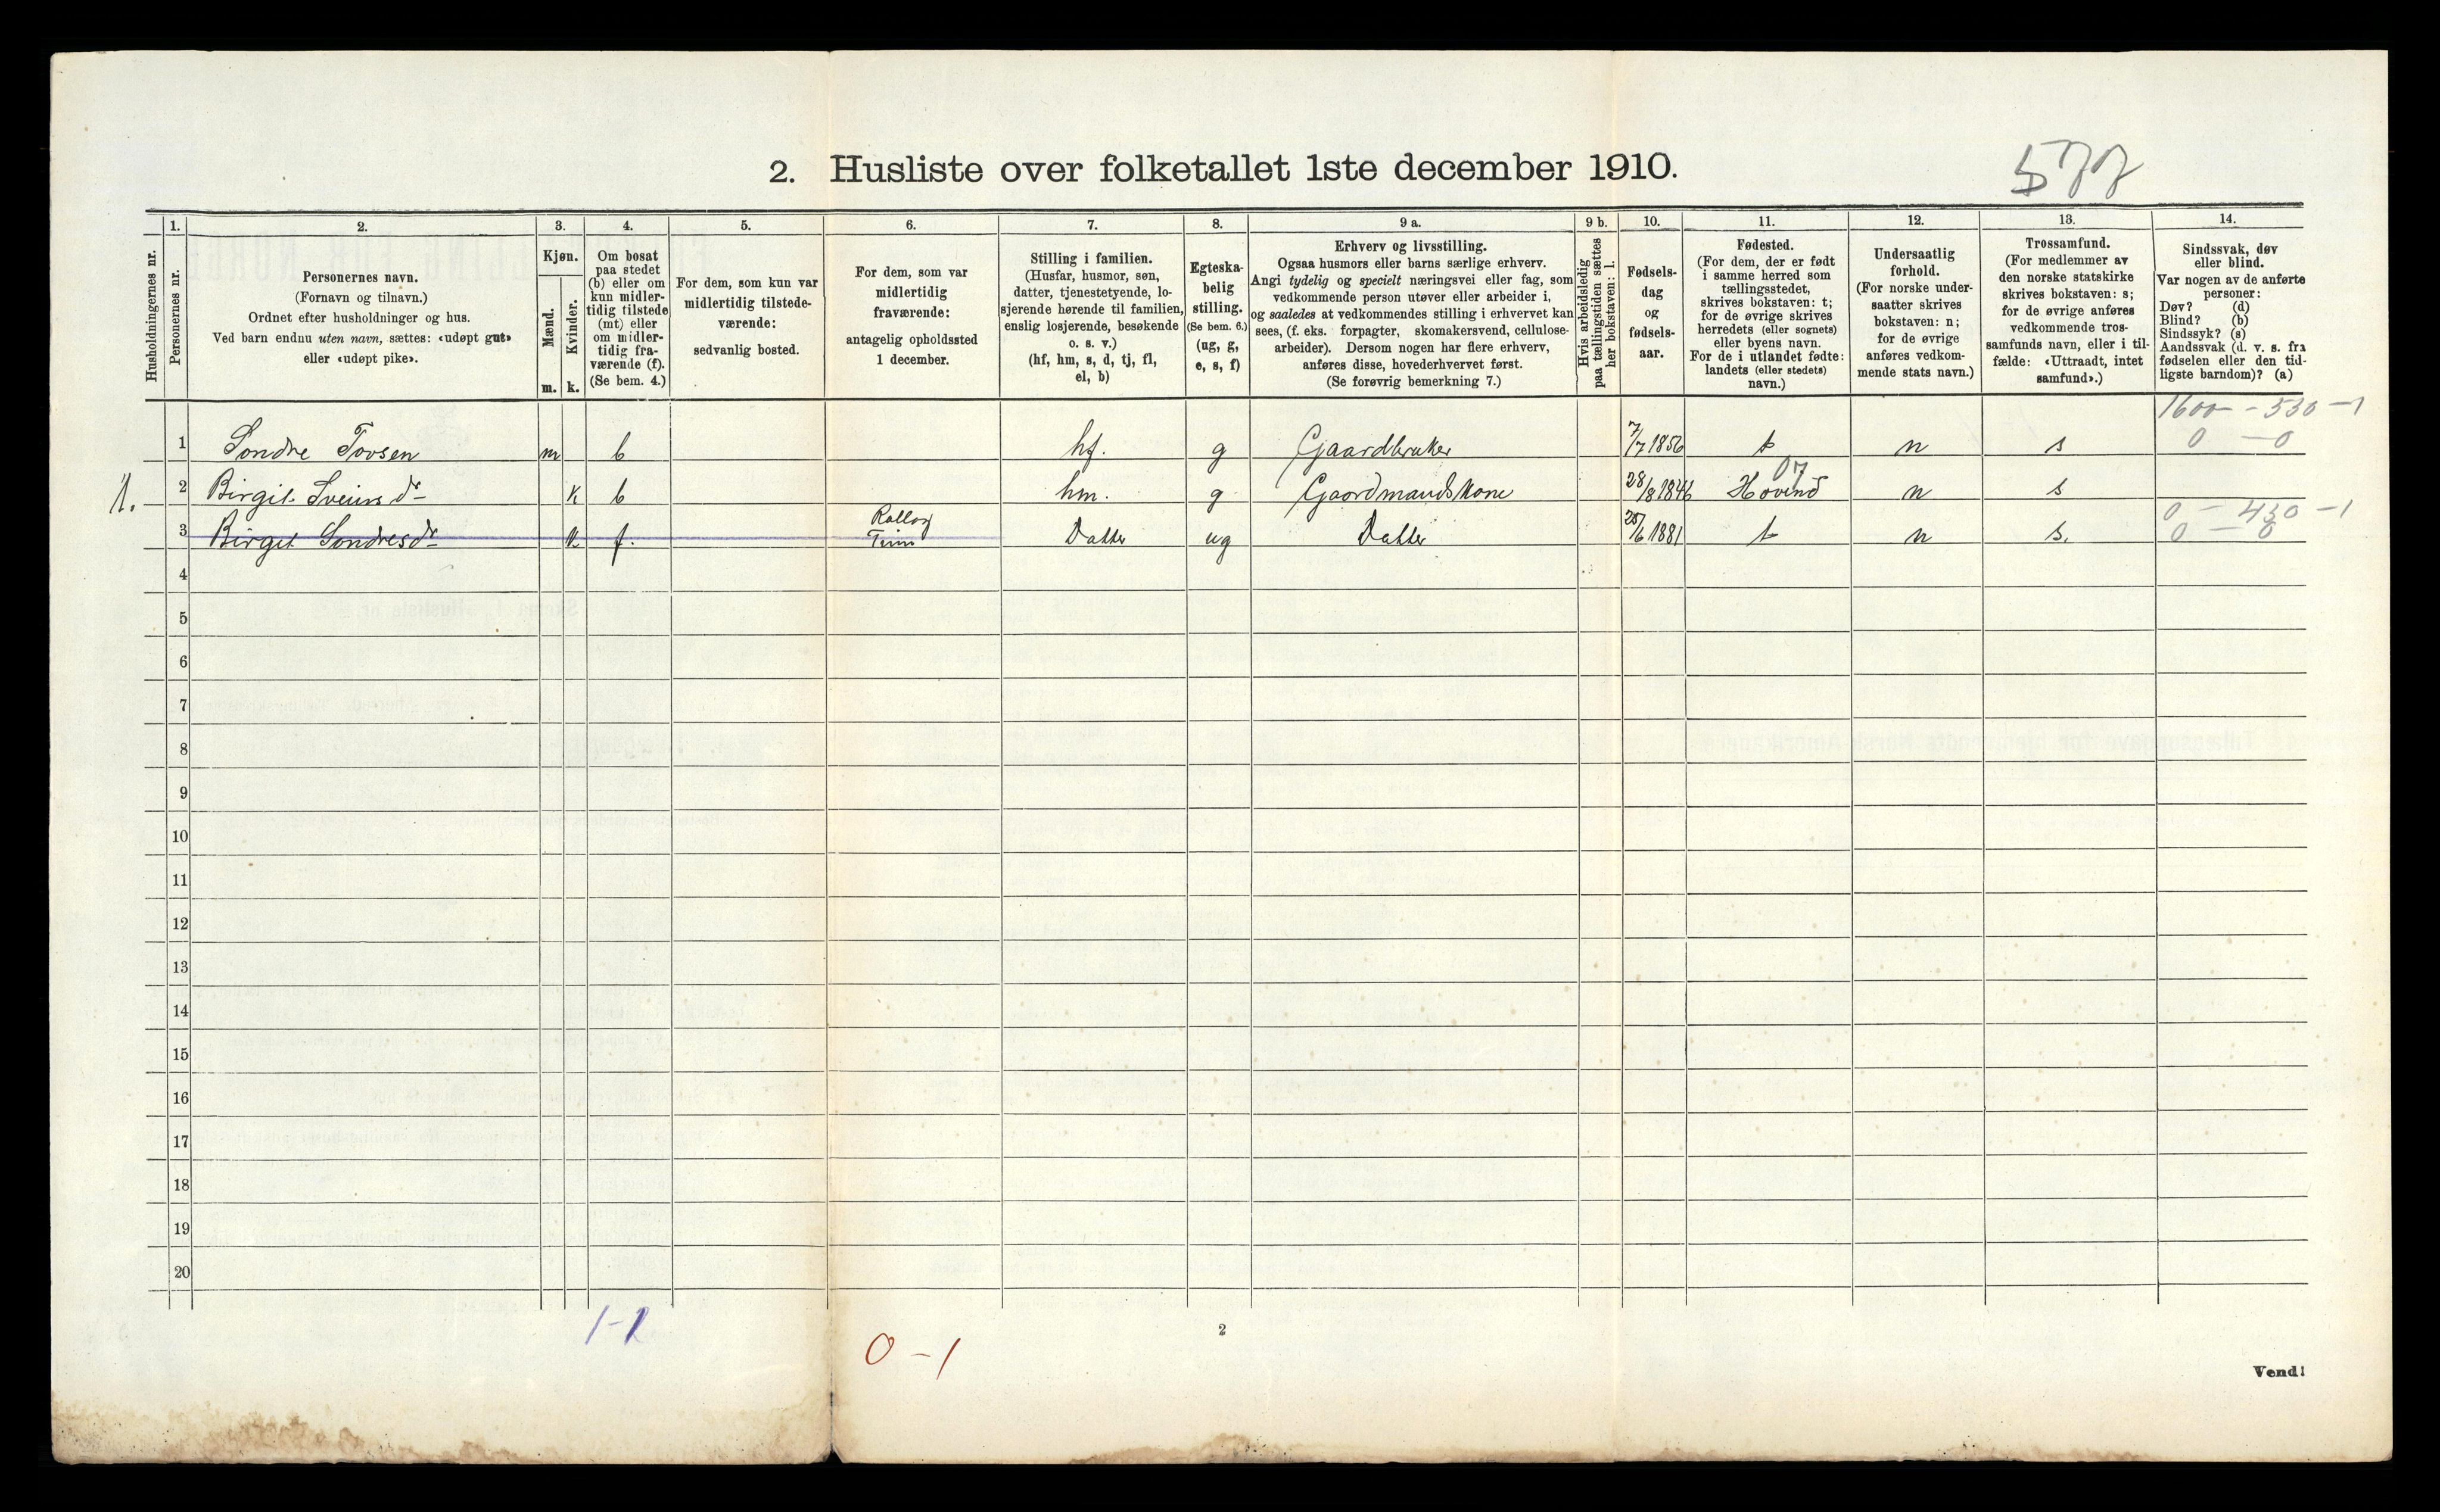 577
2. Husliste over folketallet 1ste december 1910.
Husholdningernes nr.
1.
Personernes nr.
2.
Personernes navn.
(Fornavn og tilnavn.)
Ordnet efter husholdninger og hus.
Ved barn endnu uten navn, sættes: «udøpt gut»
eller «udøpt pike».
3.
Kjøn.
Mænd.
m.
Kvinder.
k.
4.
Om bosat
paa stedet
(b) eller om
kun midler-
tidig tilstede
(mt) eller
om midler-
tidig fra-
værende (f).
(Se bem. 4.)
5.
For dem, som kun var
midlertidig tilstede-
værende:
sedvanlig bosted.
6.
For dem, som var
midlertidig
fraværende:
antagelig opholdssted
1 december.
7.
Stilling i familien.
(Husfar, husmor, søn,
datter, tjenestetyende, lo-
sjerende hørende til familien,
enslig losjerende, besøkende
o. s. v.)
(hf, hm, s, d, tj, fl,
el, b)
8.
Egteska-
belig
stilling.
(Se bem. 6.)
(ug, g,
e, s, f)
9 a.
Erhverv og livsstilling.
Ogsaa husmors eller barns særlige erhverv.
Angi tydelig og specielt næringsvei eller fag, som
vedkommende person utøver eller arbeider i,
og saaledes at vedkommendes stilling i erhvervet kan
sees, (f. eks. forpagter, skomakersvend, cellulose-
arbeider). Dersom nogen har flere erhverv,
anføres disse, hovederhvervet først.
(Se forøvrig bemerkning 7.)
9 b.
Hvis arbeidsledig
paa tællingstiden sættes
her bokstaven: l.
10.
Fødsels-
dag
og
fødsels-
aar.
11.
Fødested.
(For dem, der er født
i samme herred som
tællingsstedet,
skrives bokstaven: t;
for de øvrige skrives
herredets (eller sognets)
eller byens navn.
For de i utlandet fødte:
landets (eller stedets)
navn.)
12.
Undersaatlig
forhold.
(For norske under-
saatter skrives
bokstaven: n;
for de øvrige
anføres vedkom-
mende stats navn.)
13.
Trossamfund.
(For medlemmer av
den norske statskirke
skrives bokstaven: s;
for de øvrige anføres
vedkommende tros-
samfunds navn, eller i til-
fælde: «Uttraadt, intet
samfund».)
14.
Sindssvak, døv
eller blind.
Var nogen av de anførte
personer:
Døv? (d)
Blind? (b)
Sindssyk? (s)
Aandssvak (d. v. s. fra
fødselen eller den tid-
ligste barndom)? (a)
1600 - 530 - 1
1 Sondre Tovsen m b hf. g Gaardbruker 7/7 1856 t n s 0 - 0
07
1. 2 Birgit Sveinsdr k b hm. g Gaardmandskone 28/8 1846 Hovind n s
0 - 430 - 1
3 Birgit Sondresdr k f. Tinn Datter ug Datter 25/6 1881 t n s. 0 - 0
4
5
6
7
8
9
10
11
12
13
14
15
16
17
18
19
20
1-2
0 - 1
2
Vend!